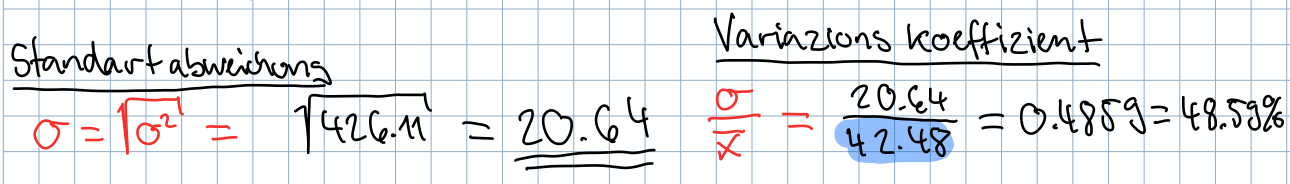 Standartabweichung
σ = √σ² = √426.11 = 20.64
Variazions koeffizient
σ/x̅ = 20.64/42.48 = 0.4859 = 48.59%